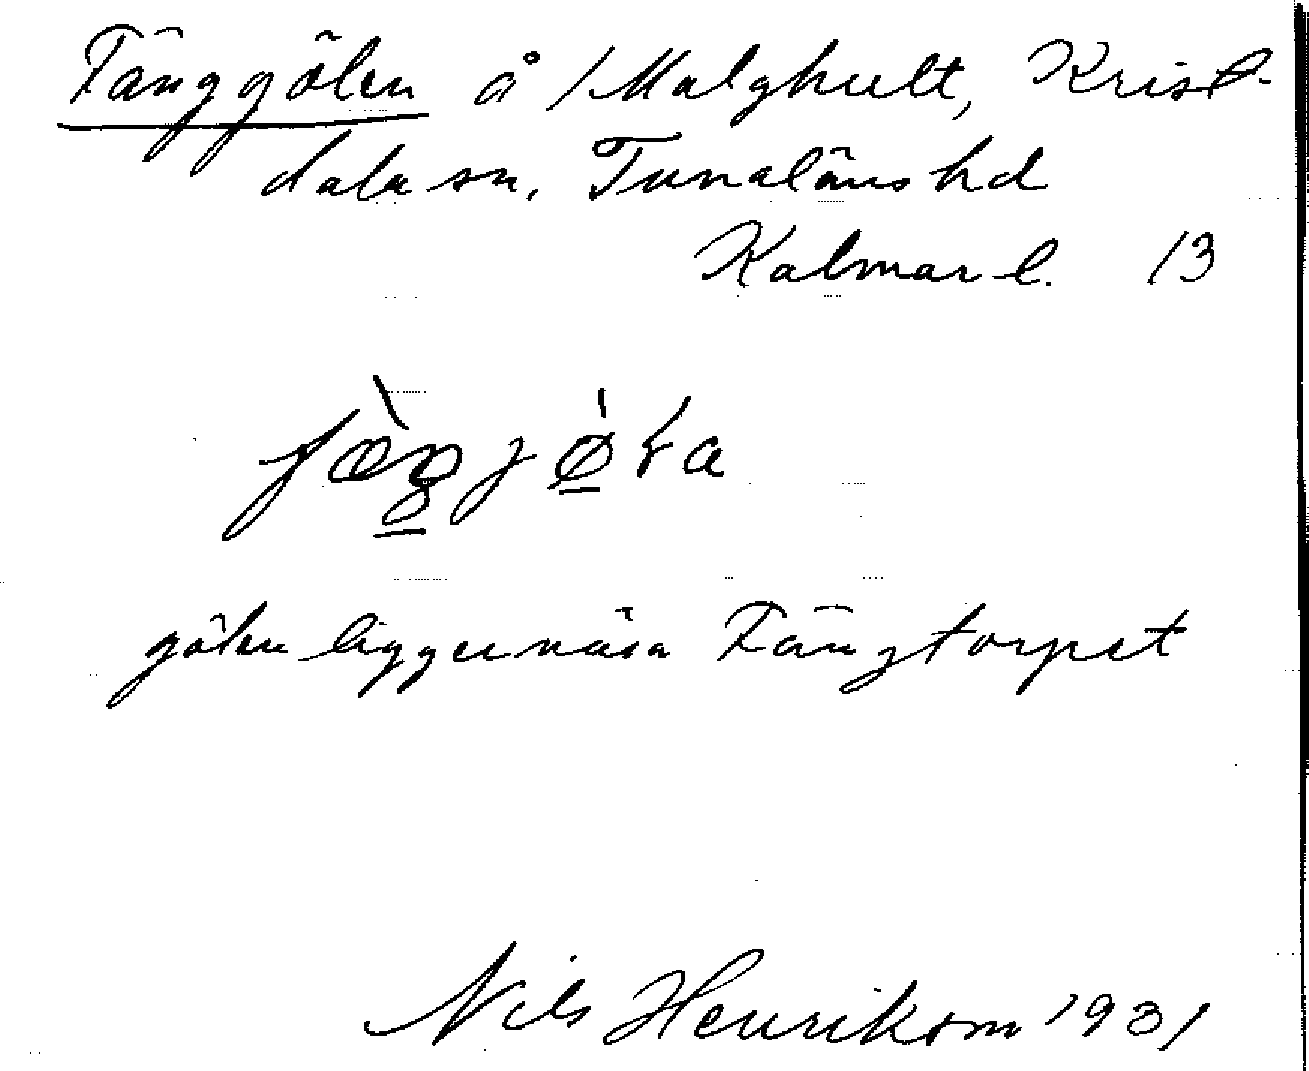 Fänggölen å /Malghult, Krist-
dala sn, Tunaläns hd
Kalmar l. 13
fæ̀ŋjø̀ɽa
gölen ligger nära Fängtorpet
Nils Henrikson 1931